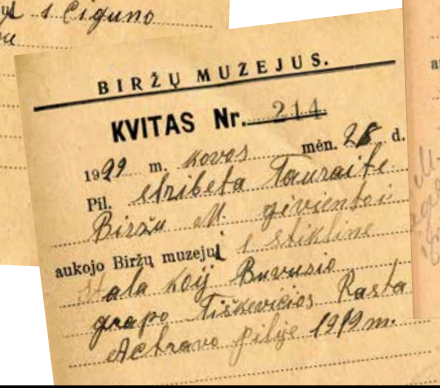 1 Ciguno
BIRŽŲ MUZEJUS.
KVITAS Nr. 214
1999 m. kovos mėn. 28 d.
Pil. Elzbeta Tauraitė
Biržu M. givientoi
aukojo Biržų muzejui 1 stiklinė
stala koij Buvusio
grapo Tiškevičios Rasta
Actravo pilije 1919 m.